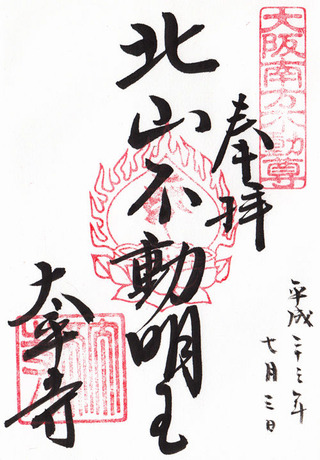 大阪南方不動尊
奉拝
北山不動明王
太平寺
平成二十三年
七月三日